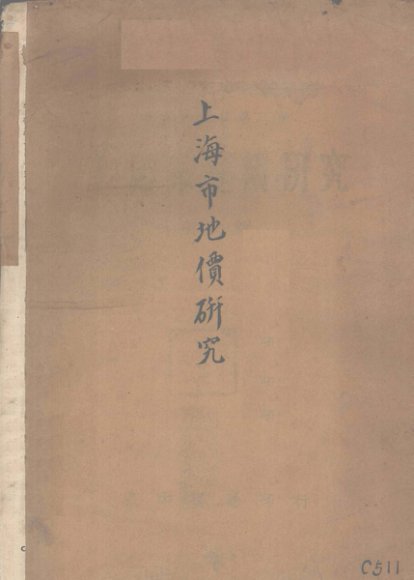 上海市地價研究
C511